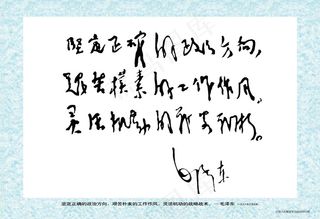 坚定正确的政治方向，
艰苦朴素的工作作风，
灵活机动的战略战术。
毛泽东
坚定正确的政治方向，艰苦朴素的工作作风，灵活机动的战略战术。 —毛泽东